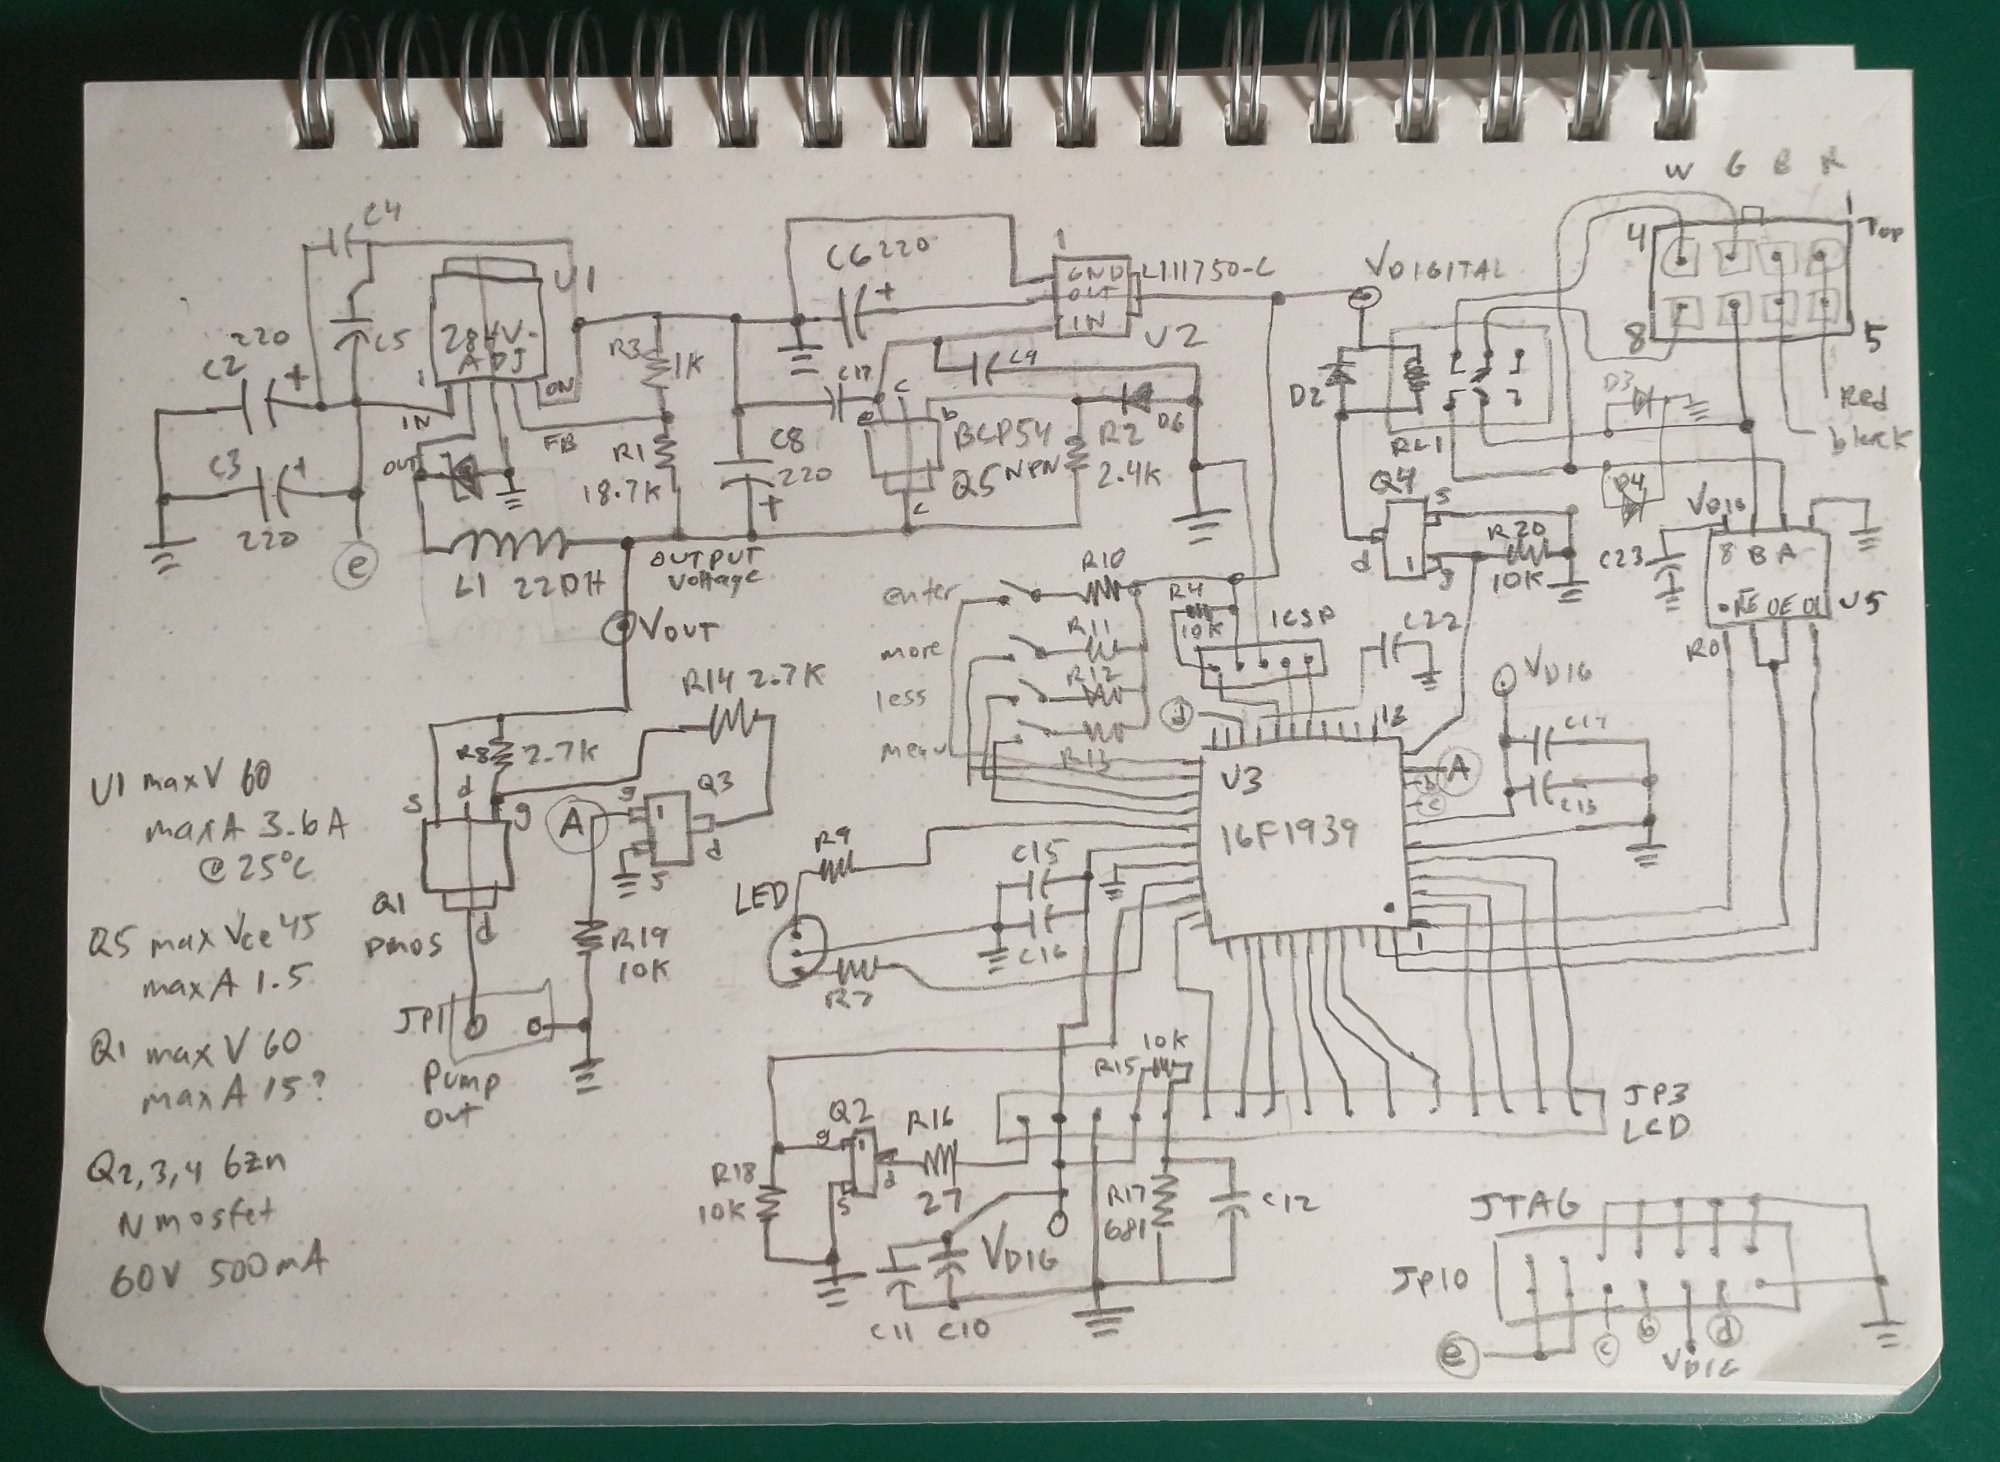 W G B R
C4
4
1
Top
8
5
U1
284V-
ADJ
1
IN
OUT
FB
ON
C5
220
C2
+
C3
+
220
e
L1 22DH
OUTPUT
Voltage
VOUT
R3
1K
R1
18.7K
C6 220
+
1
GND
OUT
IN
U2
C8
220
+
C17
C9
c
e
b
c
BCP54
Q5 NPN
R2
2.4K
D6
VDIGITAL
D2
RL1
D3
D4
Red
black
Q4
s
d
1
g
R20
10K
VDIG
C23
8 B A
RE DE DI
U5
RO
enter
more
less
menu
R10
R11
R12
R13
R4
10K
ICSP
C22
d
12
VDIG
C13
U3
16F1939
A
b
c
1
R14 2.7K
R8
2.7K
s
d
g
Q1
pmos
d
A
g
1
Q3
d
s
R19
10K
JP1
Pump
out
R9
LED
R7
C15
C16
U1 max V 60
max A 3.6A
@25°C
Q5 max Vce 45
max A 1.5
Q1 max V 60
max A 15?
Q2,3,4 6zn
N mosfet
60V 500mA
Q2
g
1
d
s
R16
27
R18
10K
10K
R15
R17
681
C12
VDIG
C11 C10
JP3
LCD
JTAG
JP10
e
c
b
VDIG
d